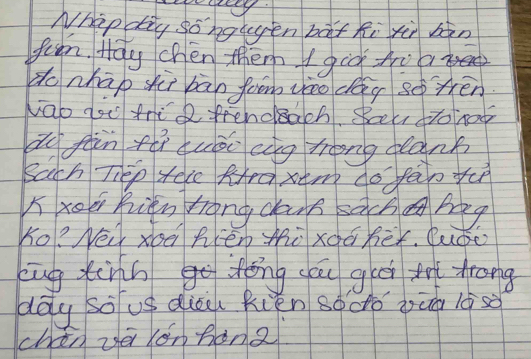 Nhập dãy số nguyên bất kì từ bàn
fím. Hãy chèn thêm 1 giá trị a
đc nhập từ bàn fím vào dãy số trên
vào vị trí 2 trên sách. Sau đó xoá
đi fần tử cuối cùg trong danh
sách Tiếp tục ktra xem có fần tử
K xoá hiện trong danh sách hay
ko? Nếu xoá hiện thì xoá hết. Cuối
cùg tính tổng các giá trị trong
dãy số vs điều kiện số đó vừa là số
chẵn và lớn hơn 2